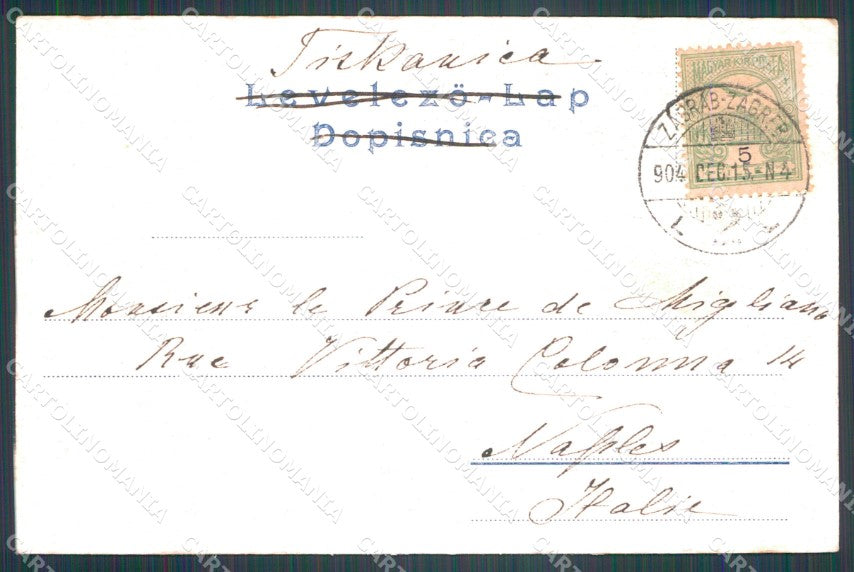 Tiskanica
Levelező-Lap
Dopisnica
MAGYAR KIR. POSTA
5
ZÁGRÁB-ZAGREB
904 DEC. 15.-N 4
Monsieur le Prince de Migliano
Rue Vittoria Colonna 14
Naples
Italie
CARTOLINOMANIA